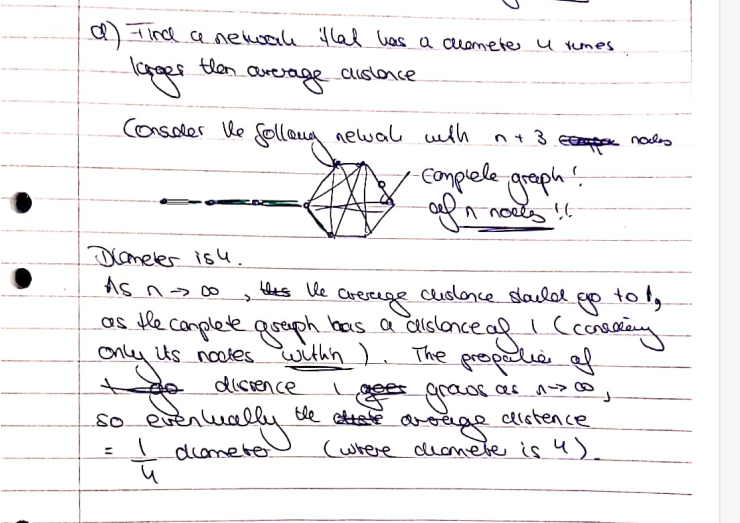 d) Find a network that has a diameter 4 times
larger then average distance
Consider the following network with n + 3 nodes
complete graph!
of n nodes!!
Diameter is 4.
As n → ∞, the average distance should go to 1,
as the complete graph has a distance of 1 (considering
only its nodes within). The properties of
distence 1 grows as n→∞,
so eventually the average distence
= 1/4 diameter (where diameter is 4).